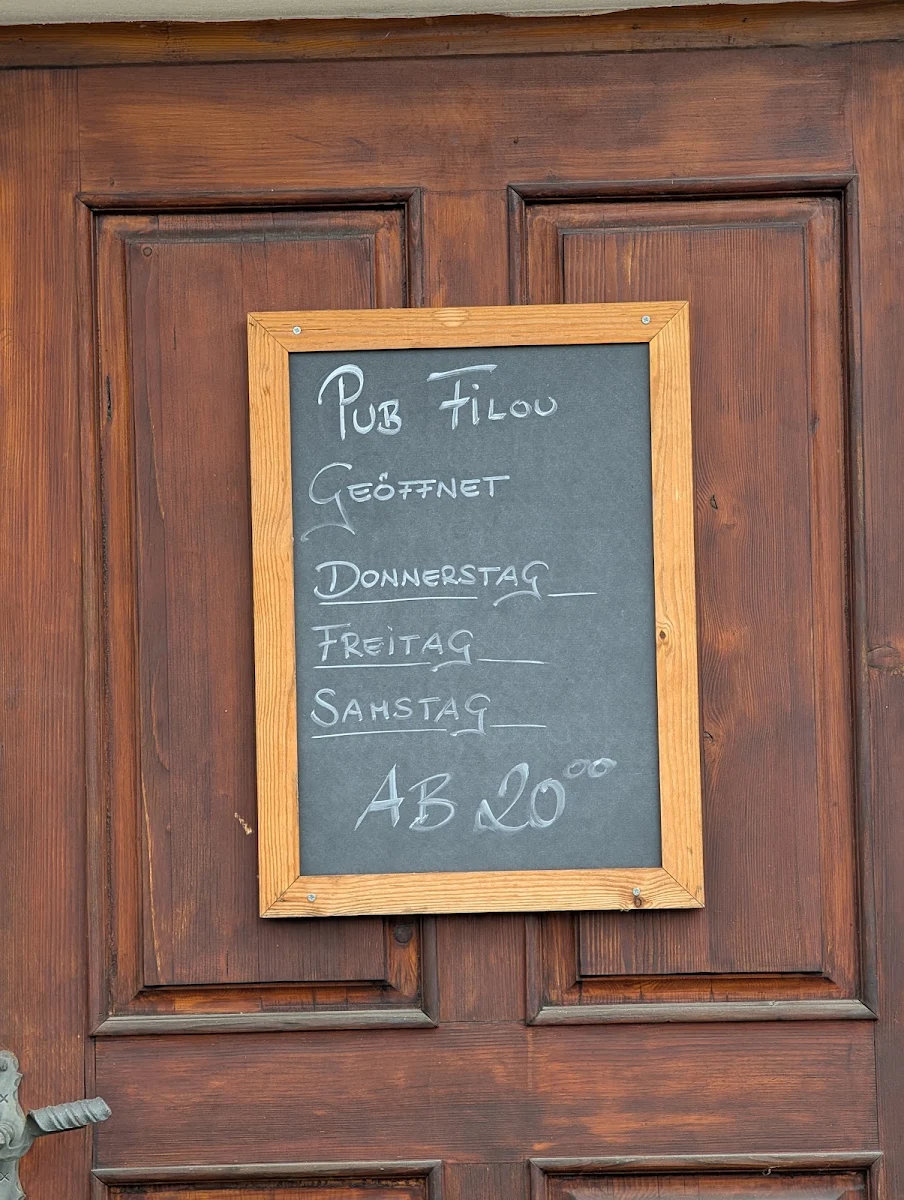 PUB FiLOU
GEÖFFNET
DONNERSTAG
FREiTAG
SAMSTAG
AB 20⁰⁰